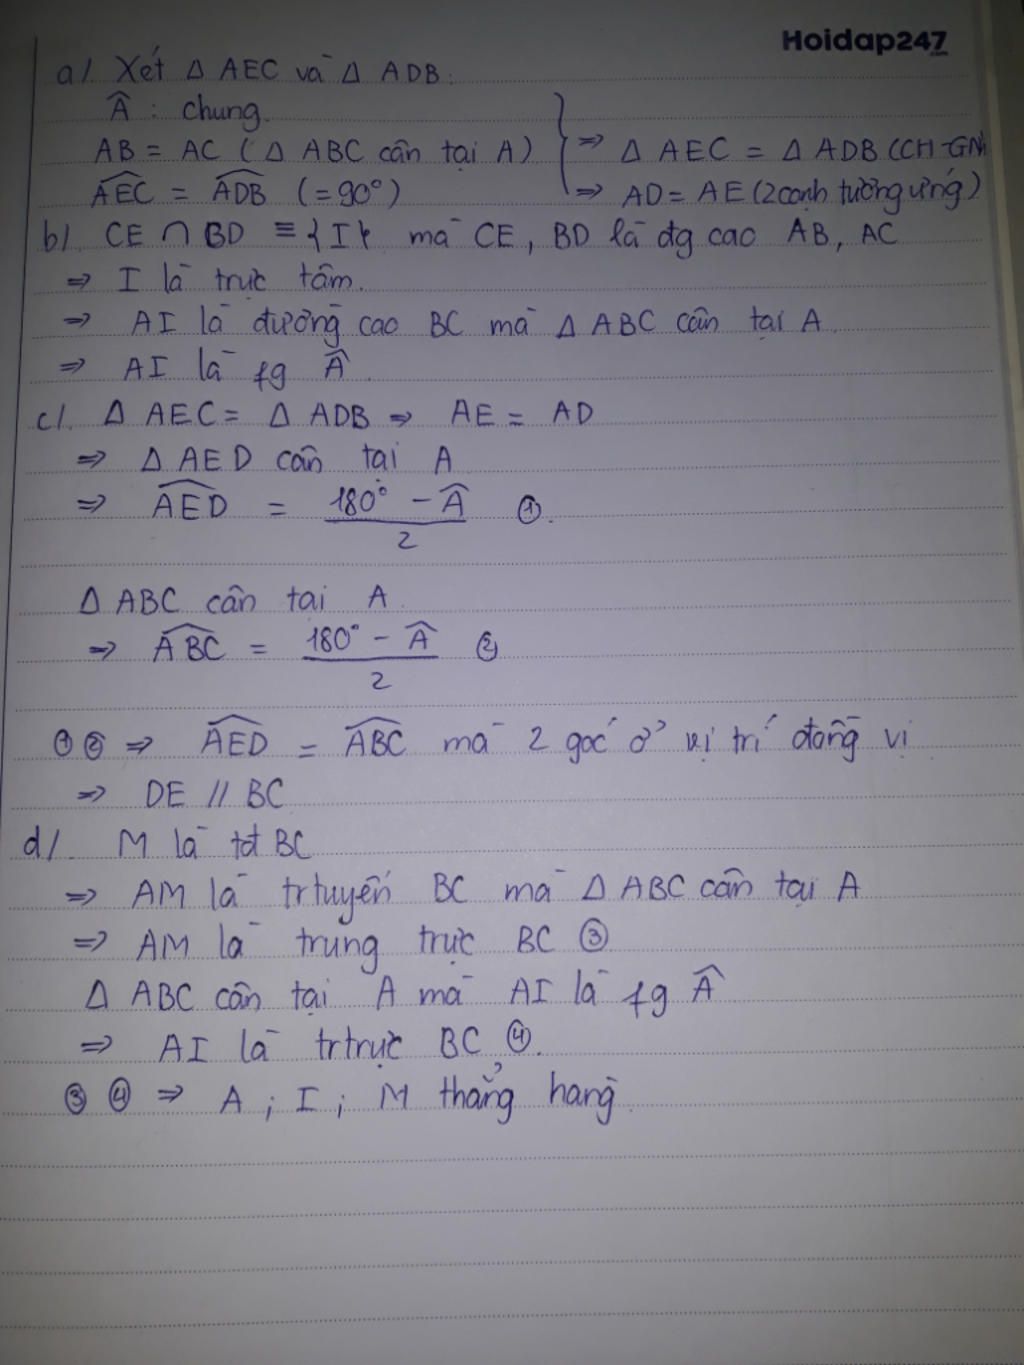 Hoidap247
a/. Xét Δ AEC và Δ ADB.
Â : chung.
AB = AC (Δ ABC cân tại A) ⇒ Δ AEC = Δ ADB (CH-GN)
\widehat{AEC} = \widehat{ADB} (=90°) ⇒ AD = AE (2 cạnh tương ứng)
b/. CE ∩ BD ≡ {I} mà CE, BD là đg cao AB, AC
⇒ I là trực tâm.
⇒ AI là đường cao BC mà Δ ABC cân tại A.
⇒ AI là fg Â.
c/. Δ AEC = Δ ADB ⇒ AE = AD
⇒ Δ AED cân tại A
⇒ \widehat{AED} = \frac{180° - Â}{2} ①.
Δ ABC cân tại A.
⇒ \widehat{ABC} = \frac{180° - Â}{2} ②
① ② ⇒ \widehat{AED} = \widehat{ABC} mà 2 góc ở vị trí đồng vị
⇒ DE // BC
d/. M là tđ BC
⇒ AM là tr tuyến BC mà Δ ABC cân tại A
⇒ AM là trung trực BC ③
Δ ABC cân tại A mà AI là fg Â
⇒ AI là tr trực BC ④.
③ ④ ⇒ A ; I ; M thẳng hàng.